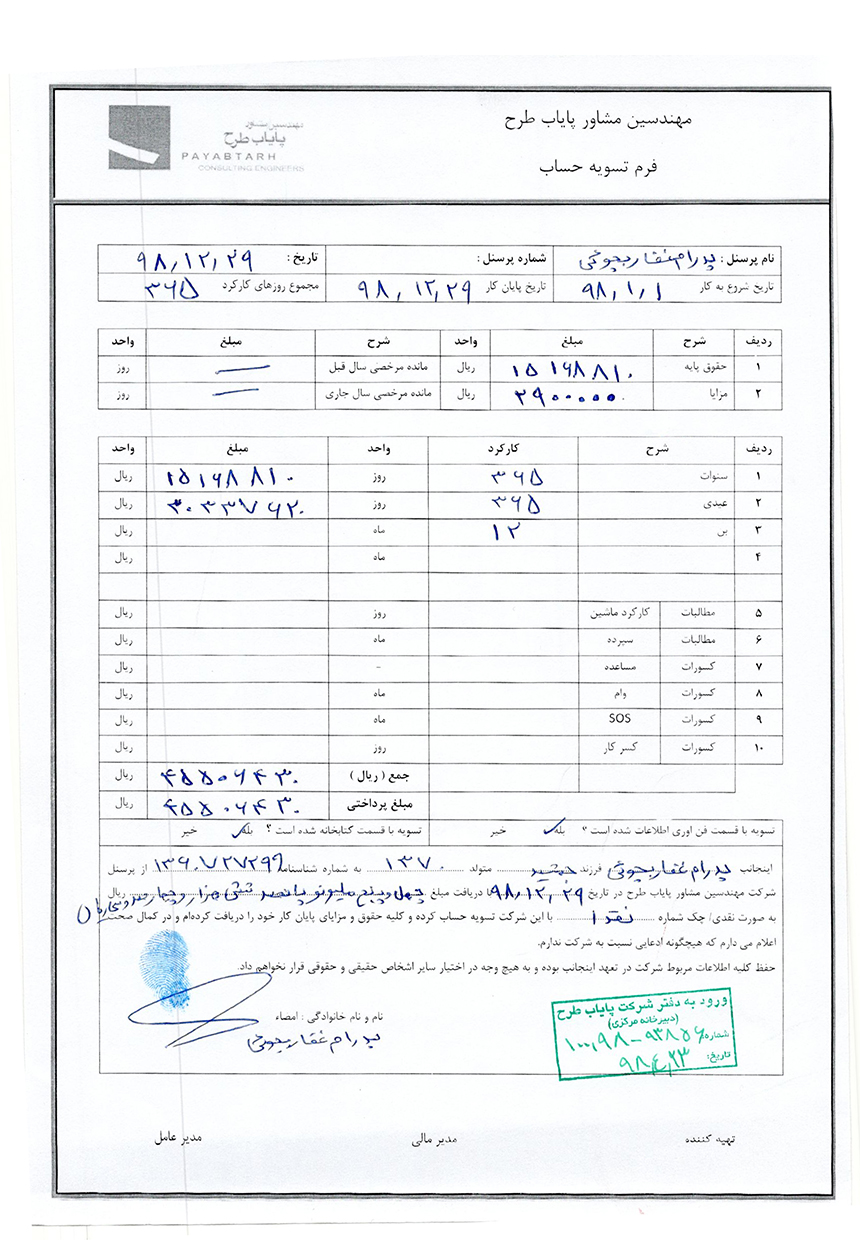 مهندسین مشاور پایاب طرح
فرم تسویه حساب
مهندسین مشاور
پایاب طرح
PAYABTARH
CONSULTING ENGINEERS
نام پرسنل : پدرام غفاریچوقی شماره پرسنل : تاریخ : ۹۸,۱۲,۲۹
تاریخ شروع به کار ۹۸,۱,۱ تاریخ پایان کار ۹۸,۱۲,۲۹ مجموع روزهای کارکرد ۳۶۵
ردیف شرح مبلغ واحد شرح مبلغ واحد
۱ حقوق پایه ۱۵۱۶۸۸۱۰ ریال مانده مرخصی سال قبل — روز
۲ مزایا ۲۹۰۰۰۰۰۰ ریال مانده مرخصی سال جاری — روز
ردیف شرح کارکرد واحد مبلغ واحد
۱ سنوات ۳۶۵ روز ۱۵۱۶۸۸۱۰ ریال
۲ عیدی ۳۶۵ روز ۳۰۳۳۷۶۲۰ ریال
۳ بن ۱۲ ماه ریال
۴ ماه ریال
۵ مطالبات کارکرد ماشین روز ریال
۶ مطالبات سپرده ماه ریال
۷ کسورات مساعده - ریال
۸ کسورات وام ماه ریال
۹ کسورات SOS ماه ریال
۱۰ کسورات کسر کار روز ریال
جمع ( ریال ) ۴۵۵۰۶۴۳۰ ریال
مبلغ پرداختی ۴۵۵۰۶۴۳۰ ریال
تسویه با قسمت فن اوری اطلاعات شده است ؟ بله ✓ خیر تسویه با قسمت کتابخانه شده است ؟ بله ✓ خیر
اینجانب پدرام غفاریچوقی فرزند جمشید متولد ۱۳۷۰ به شماره شناسنامه ۱۳۹۰۷۲۷۲۹۹ از پرسنل
شرکت مهندسین مشاور پایاب طرح در تاریخ ۹۸,۱۲,۲۹ با دریافت مبلغ چهل و پنج میلیون و پانصد شش هزار و چهارصد و ریال
به صورت نقدی/ چک شماره نقدا با این شرکت تسویه حساب کرده و کلیه حقوق و مزایای پایان کار خود را دریافت کرده‌ام و در کمال صحت
اعلام می دارم که هیچگونه ادعایی نسبت به شرکت ندارم.
حفظ کلیه اطلاعات مربوط شرکت در تعهد اینجانب بوده و به هیچ وجه در اختیار سایر اشخاص حقیقی و حقوقی قرار نخواهم داد.
نام و نام خانوادگی : امضاء
پدرام غفاریچوقی
ورود به دفتر شرکت پایاب طرح
(دبیرخانه مرکزی)
شماره: ۱۰۰,۹۸-۹۳۸۵۶
تاریخ: ۹۸,۴,۲۳
تهیه کننده مدیر مالی مدیر عامل